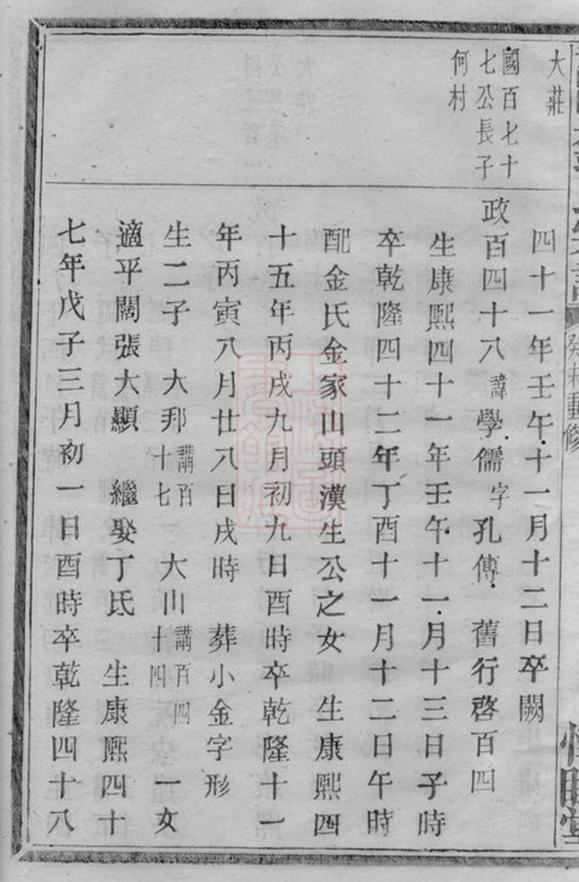 大莊
國百七十
七公長子
何村
四十一年壬午十一月十二日卒闕
政百四十八諱學儒字孔傳 舊行啓百四
生康熙四十一年壬午十一月十三日子時
卒乾隆四十二年丁酉十一月十二日午時
配金氏金家山頭漢生公之女 生康熙四
十五年丙戌九月初九日酉時卒乾隆十一
年丙寅八月廿八日戌時 葬小金字形
生二子 大邦講百十七 大山講百四十四 一女
適平闊張大顯 繼娶丁氏 生康熙四十
七年戊子三月初一日酉時卒乾隆四十八
重修